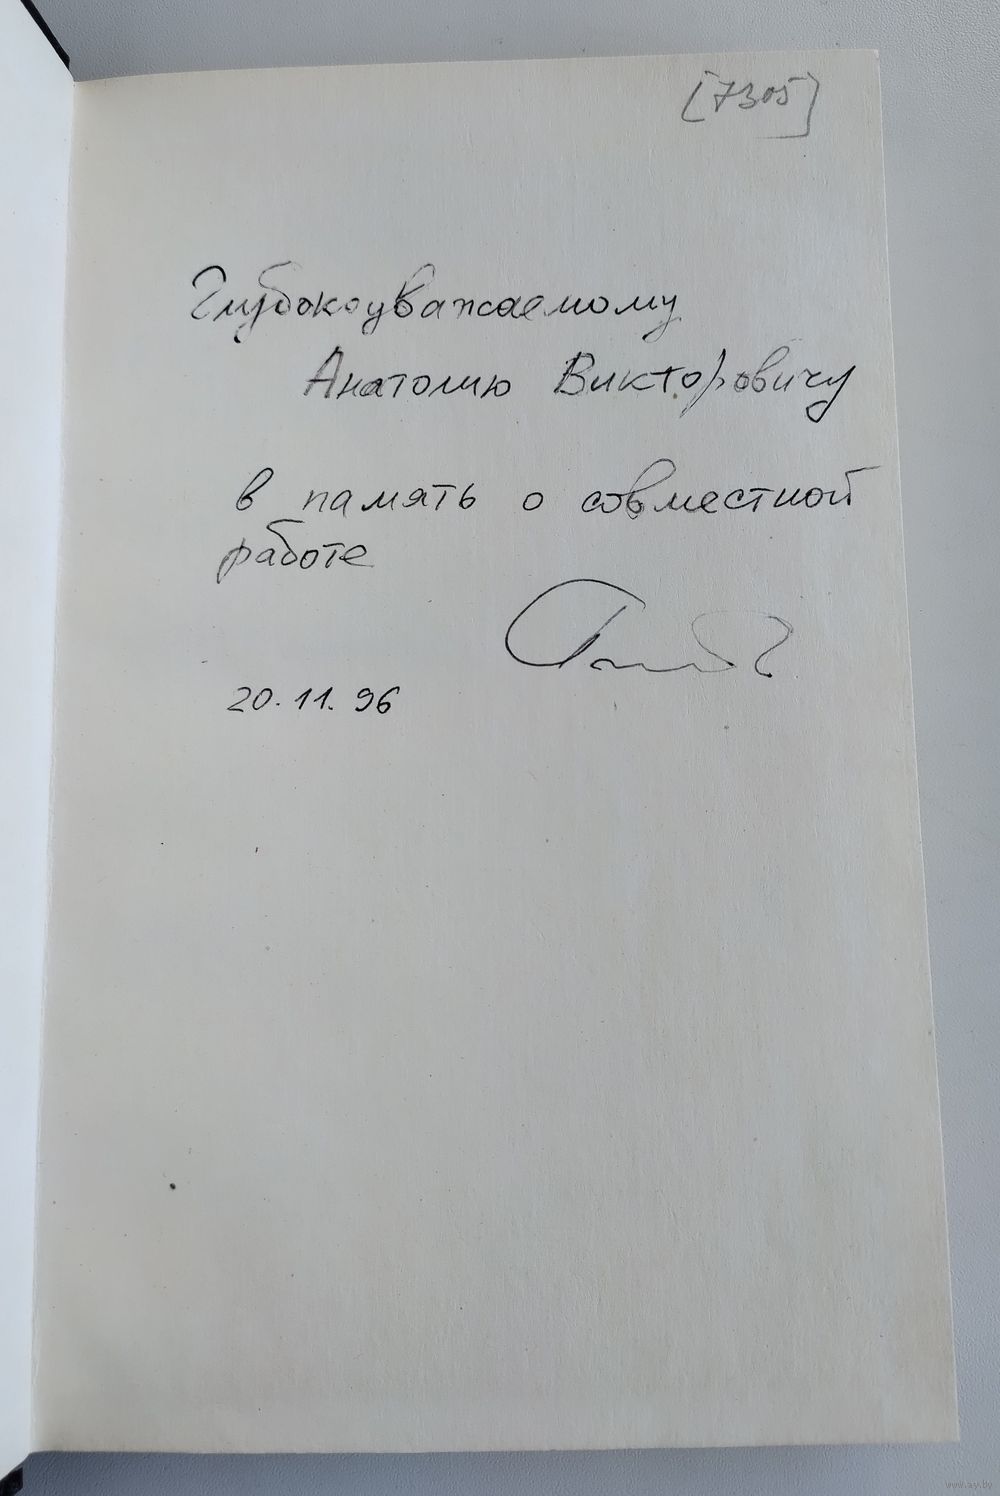 [7305]
Глубокоуважаемому
Анатолию Викторовичу
в память о совместной
работе
20.11.96
www.ay.by